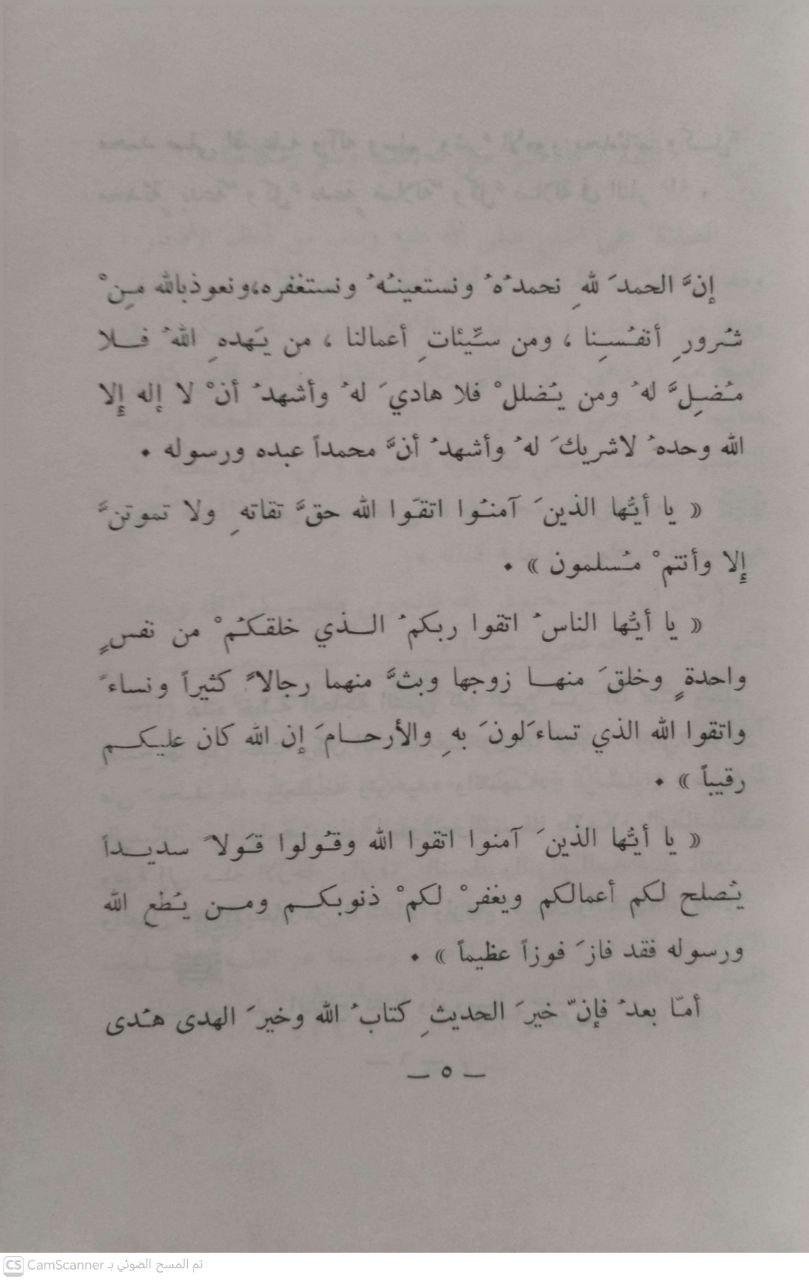 إنَّ الحمدَ للهِ نحمدُهُ ونستعينُهُ ونستغفره،ونعوذبالله مِنْ
شُرورِ أنفُسِنا ، ومن سيِّئاتِ أعمالنا ، من يَهدهِ اللهُ فلا
مُضِلَّ لهُ ومن يُضللْ فلا هاديَ لهُ وأشهدُ أنْ لا إله إلا
الله وحدهُ لاشريكَ لهُ وأشهدُ أنَّ محمداً عبده ورسوله .
« يا أيُّها الذينَ آمنُوا اتقَوا الله حقَّ تقاتهِ ولا تموتنَّ
إلا وأنتمْ مُسلمون » .
« يا أيُّها الناسُ اتقوا ربكمُ الذي خلقكُمْ من نفسٍ
واحدةٍ وخلقَ منها زوجها وبثَّ منهما رجالاً كثيراً ونساءً
واتقوا الله الذي تساءَلونَ بهِ والأرحامَ إن الله كان عليكم
رقيباً » .
« يا أيُّها الذينَ آمنوا اتقوا الله وقُولوا قَولاً سديداً
يُصلح لكم أعمالكم ويغفرْ لكمْ ذنوبكم ومن يُطع الله
ورسوله فقد فازَ فوزاً عظيماً » .
أمّا بعدُ فإنّ خيرَ الحديثِ كتابُ الله وخيرَ الهدى هُدى
— ٥ —
CS CamScanner تم المسح الضوئي بـ